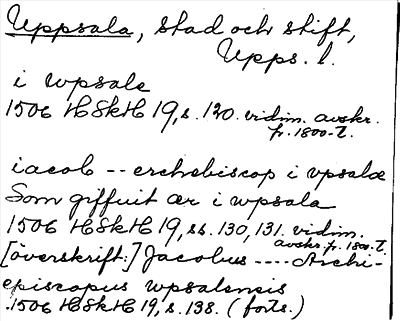 Uppsala, stad och stift,
Upps. l.
i wpsale
1506 HSkH 19, s. 120. vidim. avskr.
fr. 1800-t.
iacob -- erchebiscop i vpsalæ
Som giffuit ær i wpsala
1506 HSkH 19, ss. 130, 131. vidim.
avskr. fr. 1800-t.
[överskrift:] Jacobus ---- Archi-
episcopus wpsalensis
1506 HSkH 19, s. 138. (forts.)